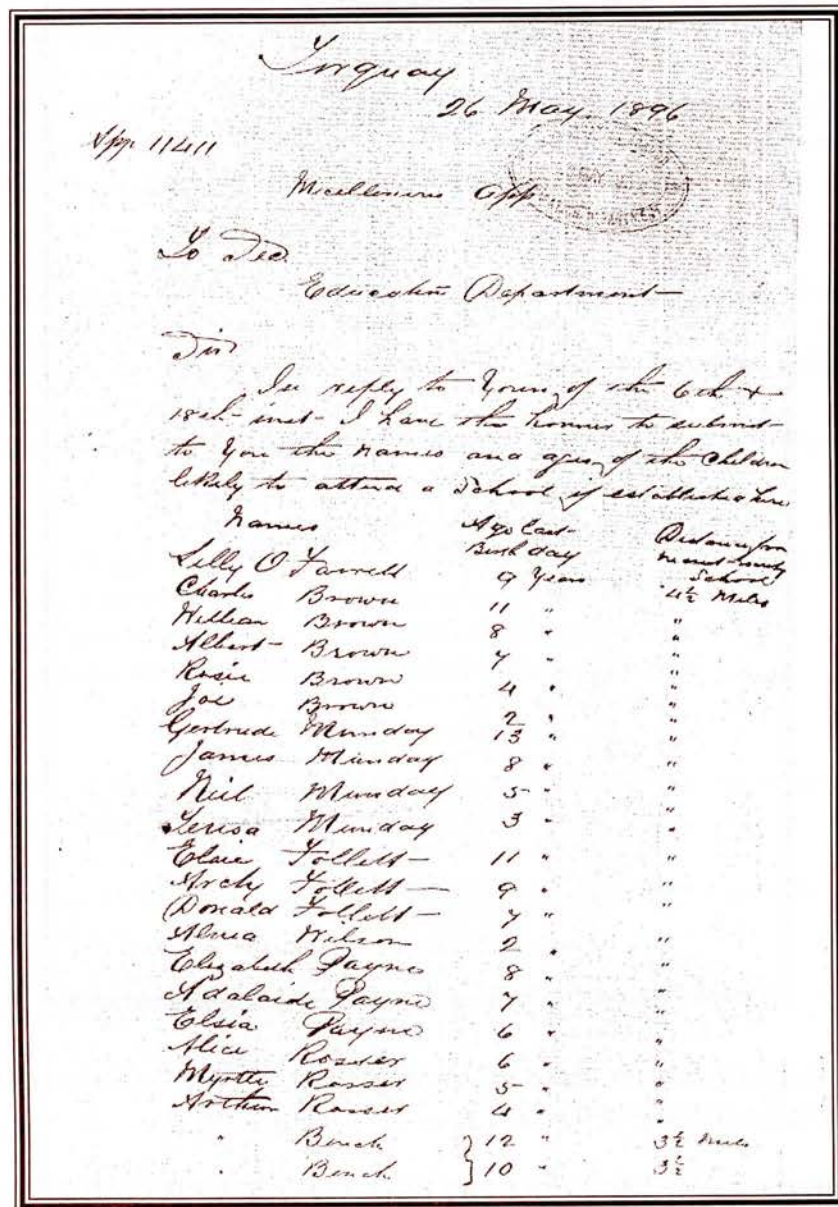 Torquay
26 May. 1896
App 11411
App
To Sec.
Education Department
Sir
In reply to Yours of the 6th &
18th inst I have the honour to submit
to You the names and ages of the Children
likely to attend a School if established here
Names Age Last Birthday Distance from School
Lilly O'Farrell 9 Years 4½ Miles
Charles Brown 11 " "
William Brown 8 " "
Albert Brown 7 " "
Rosie Brown 4 " "
Joe Brown 2 " "
Gertrude Munday 13 " "
James Munday 8 " "
Neil Munday 5 " "
Terisa Munday 3 " "
Elsie Follett 11 " "
Archy Follett 9 " "
Donald Follett 7 " "
Wilson 2 " "
Elizabeth Payne 8 " "
Adalaide Payne 7 " "
Elsia Payne 6 " "
Alice Rosser 6 " "
Myrtty Rosser 5 " "
Arthur Rosser 4 " "
" Bench } 12 " 3½ Miles
" Bench } 10 " 3½